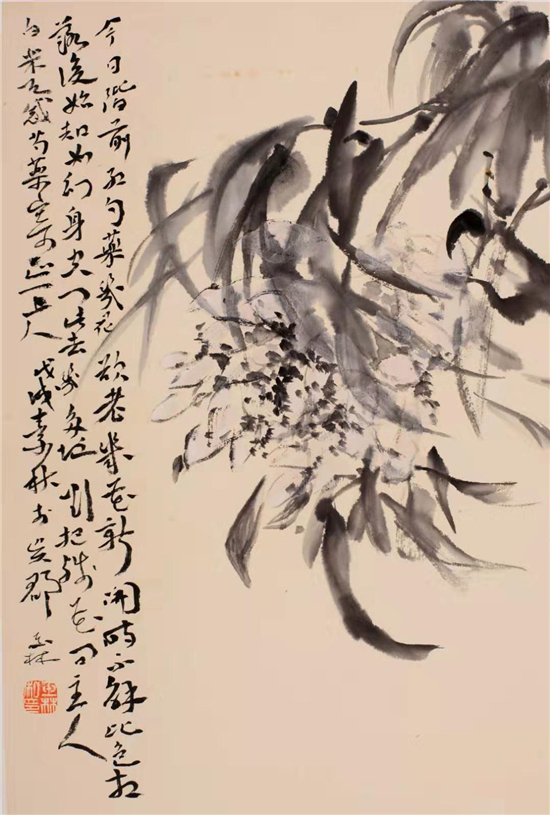 今日階前红勺藥幾花欲老幾花新開時不解比色相
落後始知如幻身空门此去幾多地把残花问主人
白樂天感芍藥寄正一上人 戊戌素秋于吴郡